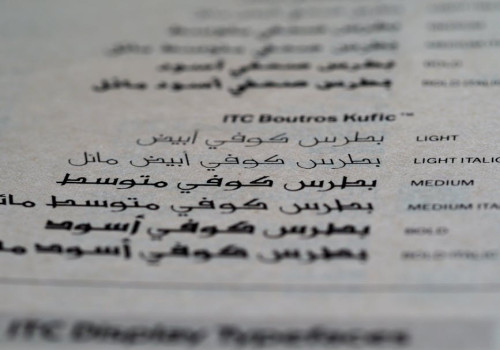 بطرس صحفي أسود
بطرس صحفي أسود مائل
ITC Boutros Kufic™
بطرس كوفي أبيض LIGHT
بطرس كوفي أبيض مائل LIGHT ITALIC
بطرس كوفي متوسط MEDIUM
بطرس كوفي متوسط مائل MEDIUM ITA
بطرس كوفي أسود BOLD
بطرس كوفي أسود BOLD ITALIC
ITC Display Typefaces